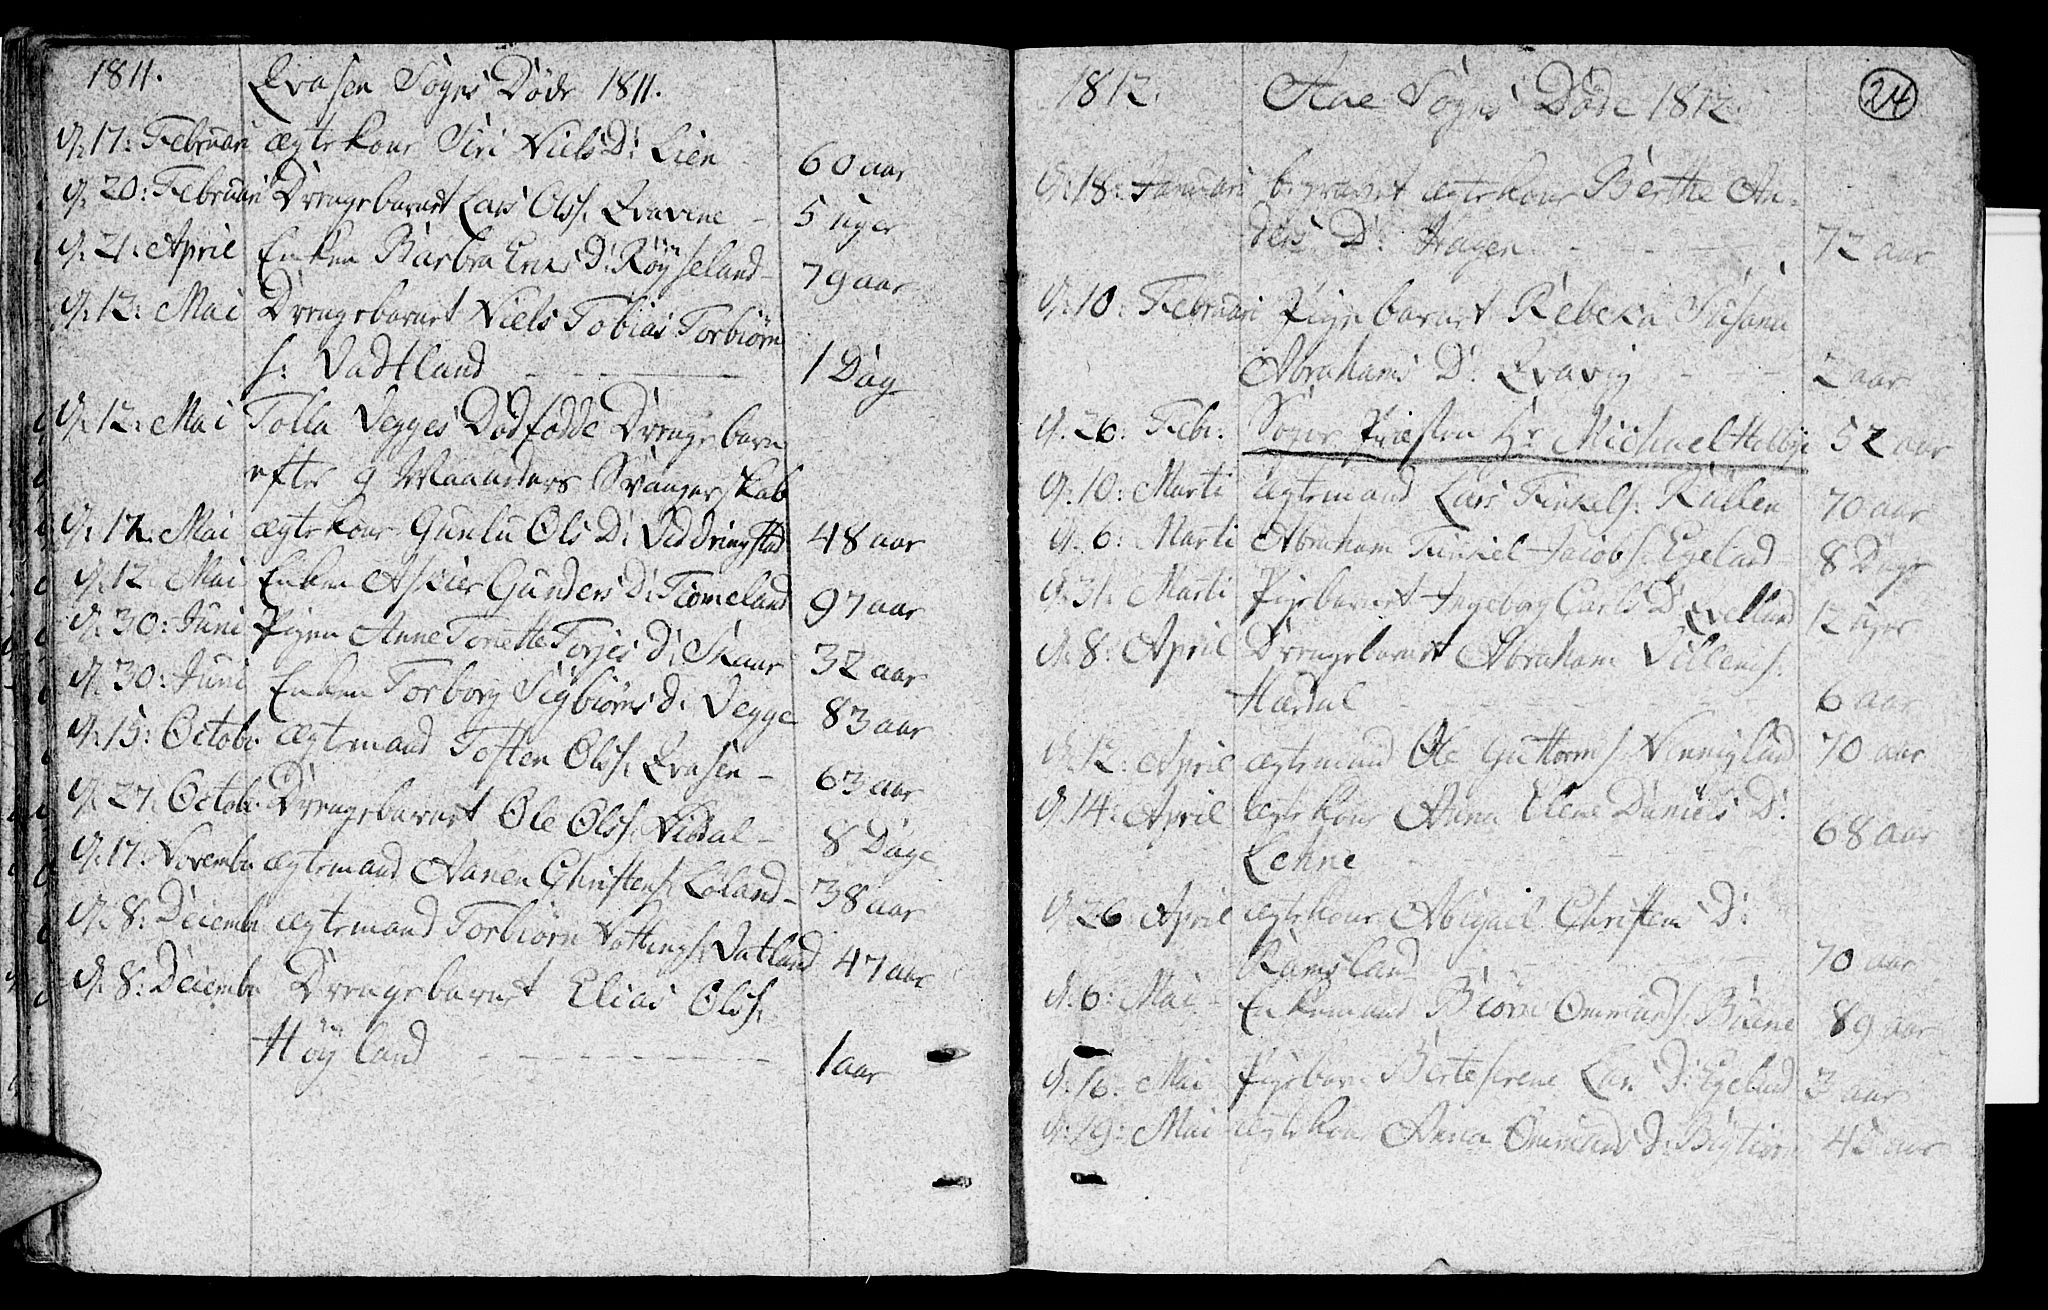 1811. Qvasen Sogns Døde 1811.
d. 17: Februari ægte kone Siri Niels D: Lien - 60 aar
d. 20: Februari Drengebarnet Lars Ols s. Qvavine - 5 uger
d. 21. April Enken Barbra D: Røyseland - 79 aar
d. 12: Mai Drengebarnet Niels Tobias Torbiørn
s: Vadtland 1 Dag
d. 12: Mai Tolla Vegges Dødfødde Drengebarn
efter 9 Maaneders Svangerskab
d. 12. Mai ægte kone Gunlu Ols D: 48 aar
d. 12. Mai Enken Gunders D: Tiomeland 97 aar
d. 30: Juni Pigen Anne Tonette Torjes D: Skaar 32 aar
d. 30: Juni Enken Torborg Sigbiørns d: Vegge 83 aar
d. 15: Octobr ægtemand Tosten Ols s. Qvasen - 63 aar
d. 27. Octobr. Drengebarnet Ole Ols s. - 8 Dage
d. 17: Novembr ægtemand Aanen Christens s. Løland - 38 aar
d. 8: Decembr ægtemand Torbiørn Vatland 47 aar
d. 8: Decembr Drengebarnet Elias Ols s.
Høyland 1 aar
24
1812. Aae Sogns Døde 1812.
d. 18: Januari begravet ægtekone Berthe An-
ders D: Hagen 72 aar
d. 10: Februari Pigebarnet Rebeka Susanna
Abrahams D: Qvavig 2 aar
d. 26: Febr. Sogne Præsten Hr. Michael 52 aar
d. 10: Marti ægtemand Lars 70 aar
d. 6: Marti Abraham Jacobs s. Egeland - 8 Dage
d. 31. Marti Pigebarnet Ingeborg Carls D: Qvelland 12 uger
d. 8: April Drengebarnet Abraham Villums s.
Hærdal 6 aar
d. 12: April ægtemand Ole Guttorms s. 70 aar
d. 14: April ægtekone Anna Elene Daniels D:
Lehne 68 aar
d. 26 April ægtekone Abigael Christens D:
Ramsland 70 aar
d. 6: Mai - Enkemand Biørn Ommunds s. Brune 89 aar
d. 16: Mai Pigebarn Berteserene Lars D: Egeland 3 aar
d. 19: Mai ægtekone Anna Ommunds d: 45 aar